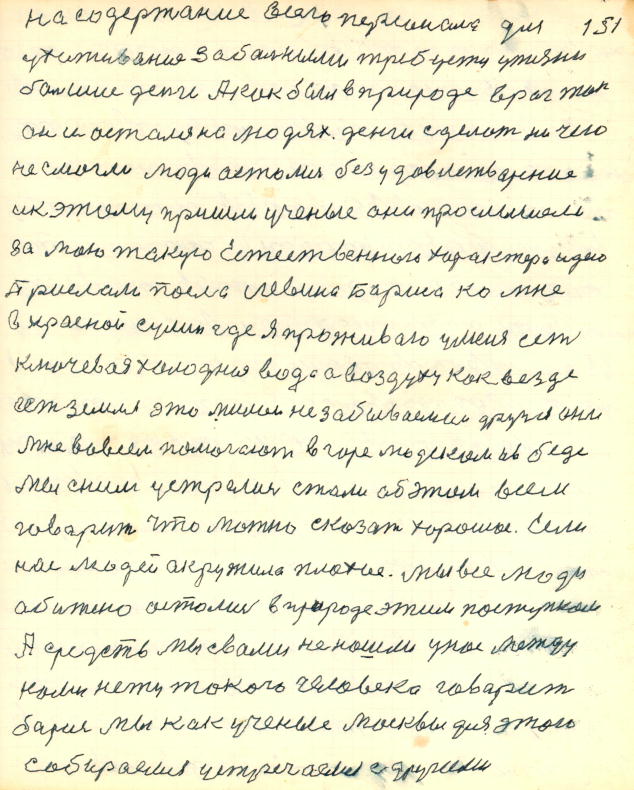 на содержание всего персонала для 151
ухитивания за балними требуети ужяни
балшие денги А как бали в природе враг так
он и остался на людях. денги сделат ни чего
не смогли люди астолис без удовлетварение
и к этому пришли ученые они прослышели
за мою такую Естественного характера идею
Прислали посла Левина Бариса ко мне
в красной сулин где Я проживаю у меня ест
ключевая халодная вода а воздуху как везде
ест земля это милаи незабываемаи друзя они
мне вовсем помогают в горе людском и в беде
Мы сним устрелис стали об этом всем
говарит что можно сказат хорошое. Если
нас людей акружила плохое. мы все люди
абижено астолис в природе этим поступком
А средств мы свами не нашли у нас между
нами нету такого человека говарит
барис мы как ученые Москвы для этого
собираемся устречаемся с другими